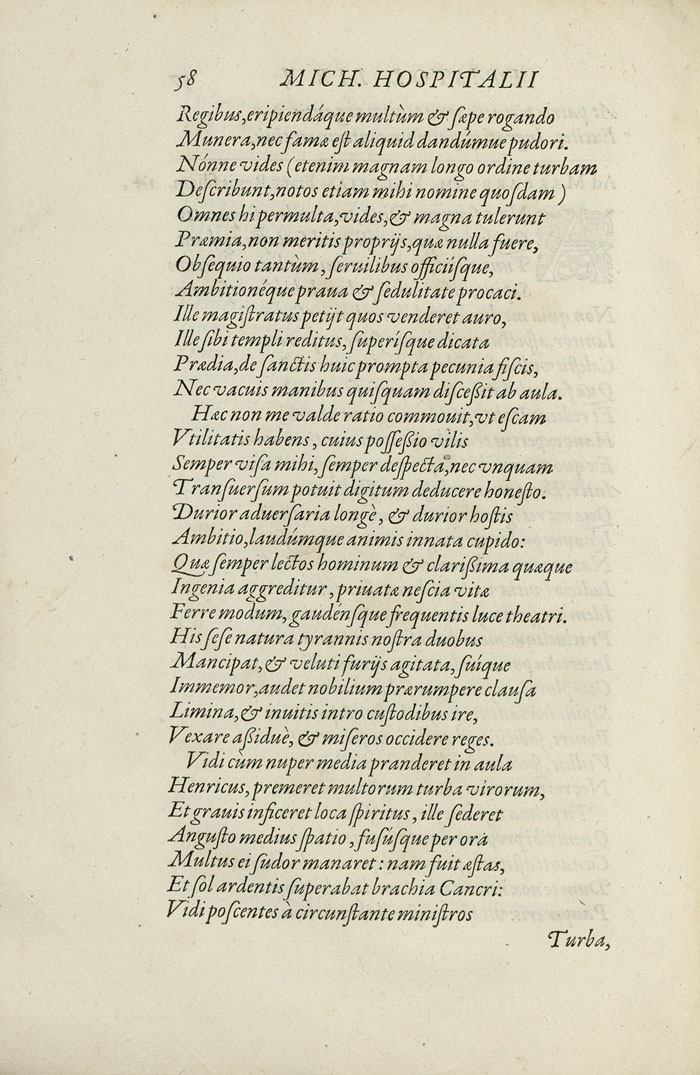 58 MICH. HOSPITALII
Regibus, eripiendáque multùm & sæpe rogando
Munera, nec famæ est aliquid dandúmue pudori.
Nónne vides (etenim magnam longo ordine turbam
Describunt, notos etiam mihi nomine quosdam)
Omnes hi permulta, vides, & magna tulerunt
Præmia, non meritis proprijs, quæ nulla fuere,
Obsequio tantùm, seruilibus officiísque,
Ambitionéque praua & sedulitate procaci.
Ille magistratus petijt quos venderet auro,
Ille sibi templi reditus, superísque dicata
Prædia, de sanctis huic prompta pecunia fiscis,
Nec vacuis manibus quisquam discessit ab aula.
Hæc non me valde ratio commouit, vt escam
Vtilitatis habens, cuius possessio vilis
Semper visa mihi, semper despecta, nec vnquam
Transuersum potuit digitum deducere honesto.
Durior aduersaria longè, & durior hostis
Ambitio, laudúmque animis innata cupido:
Quæ semper lectos hominum & clarissima quæque
Ingenia aggreditur, priuatæ nescia vitæ
Ferre modum, gaudénsque frequentis luce theatri.
His sese natura tyrannis nostra duobus
Mancipat, & veluti furijs agitata, suíque
Immemor, audet nobilium prærumpere clausa
Limina, & inuitis intro custodibus ire,
Vexare assiduè, & miseros occidere reges.
Vidi cùm nuper media pranderet in aula
Henricus, premeret multorum turba virorum,
Et grauis inficeret loca spiritus, ille sederet
Angusto medius spatio, fusúsque per ora
Multus ei sudor manaret: nam fuit æstas,
Et sol ardentis superabat brachia Cancri:
Vidi poscentes à circunstante ministros
Turba,